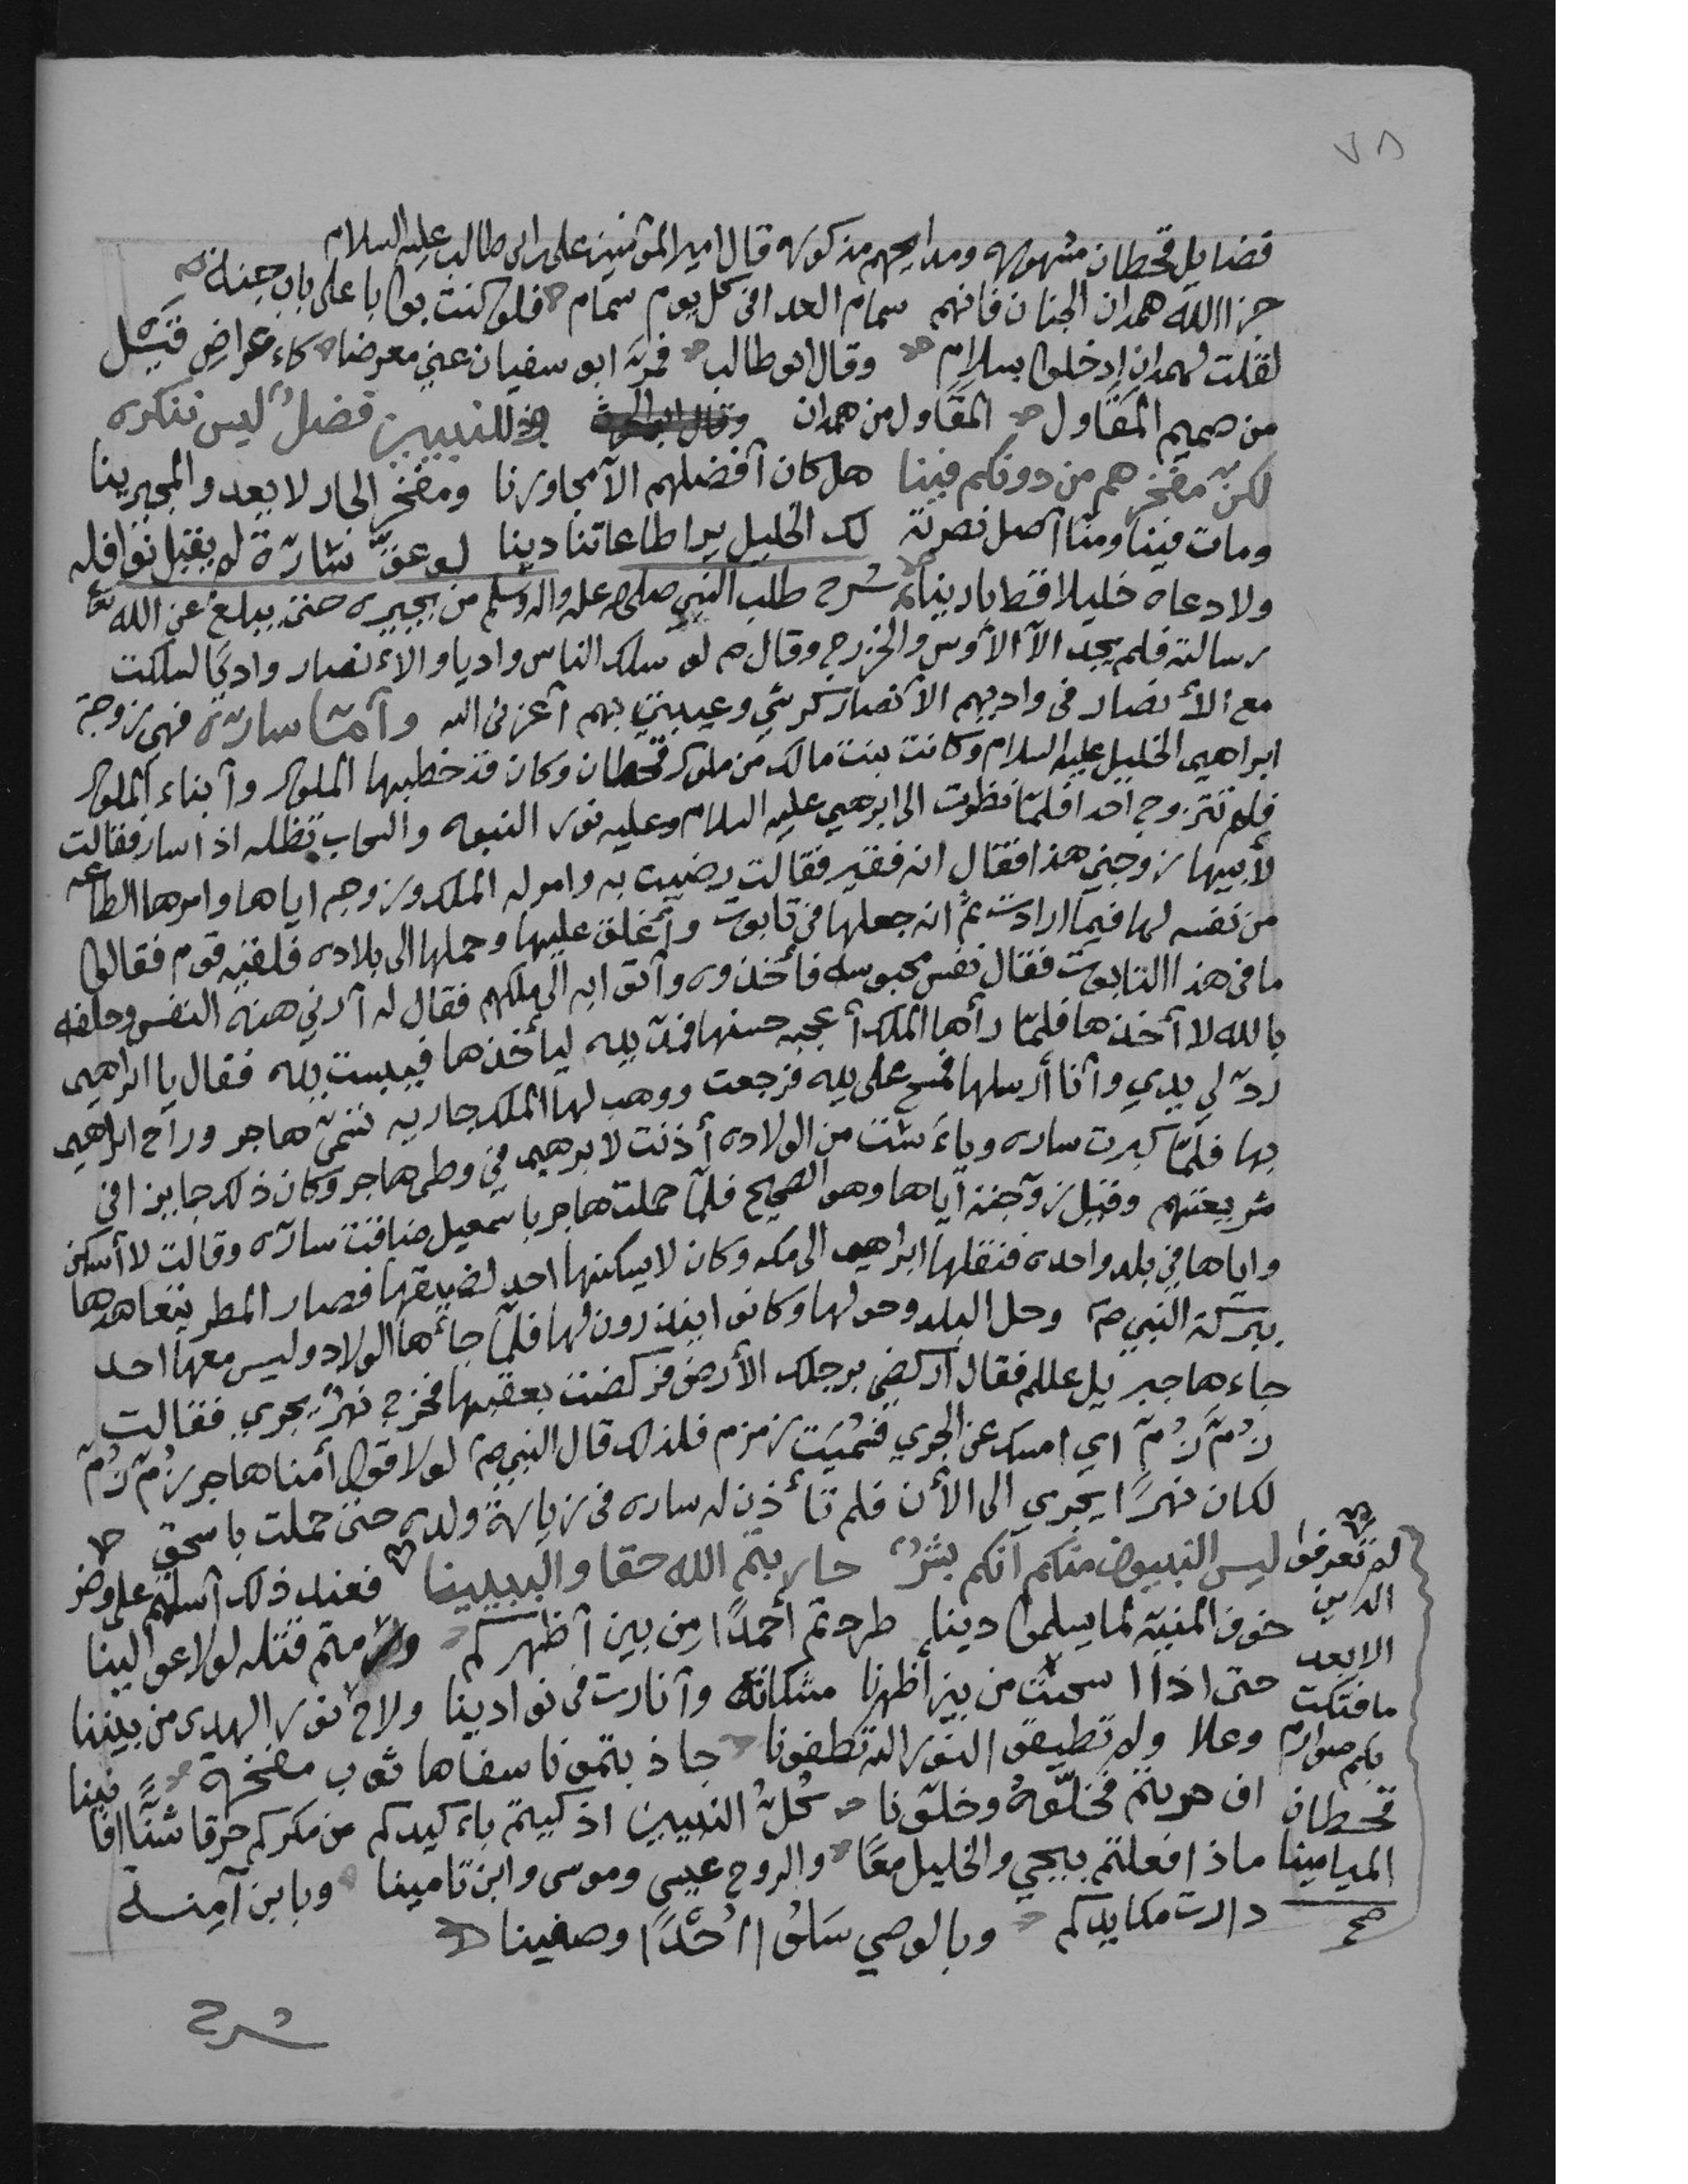 ٧٨
فضايل قحطان مشهوره ومدايحهم مذكوره قال امير المؤمنين على ابن ابي طالب عليه السلام
جزا الله همدان الجنان فانهم سمام العدا في كل يوم سمام فلو كنت بوابا على باب جنة
لقلت لهمدان ادخلوا بسلام وقال ابو طالب فمر ابو سفيان عني معرضا كاء عراض قيل
من صميم المقاول المقاول من همدان للنبيين فضل ليس ننكره
لكن مفخرهم من دونكم فينا هل كان أفضلهم الا مجاورنا ومفخر الجار لا يعد والمجيرينا
ومات فينا ومنا أصل نصرته لك الخليل يرا طاعاتنا دينا لو عق سارة لم يقبل نوافله
ولا دعاه خليلا قط بارينا شرح طلب النبي صلى الله عليه واله وسلم من يجيره حتى يبلغ عن الله تعا
رسالته فلم يجد الا الأوس والخزرج وقال ص لو سلك الناس واديا والاءنصار واديا لسلكت
مع الأنصار في واديهم الأنصار كرشي وعيبتي بهم أعزني الله وأما سارة فهي زوجة
ابراهيم الخليل عليه السلام وكانت بنت مالك من ملوك قحطان وكان قد خطبها الملوك وأبناء الملوك
فلم تتزوج أحدا فلما نظرت الى ابرهيم عليه السلام وعليه نور النبوه والسحاب تظله اذا سار فقالت
لأبيها زوجني هذا فقال انه فقير فقالت رضيت به وامر له الملك وزوجه اياها وامرها الطاعه
من نفسه لها فيما ارادت ثم انه جعلها في تابوت وأغلق عليها وحملها الى بلاده فلقيه قوم فقالوا
ما في هذا التابوت فقال نفس محبوسه فأخذوه وأتوا به الى ملكهم فقال له أرني هذه النفس وحلفه
بالله لا أخذها فلما رأها الملك أعجبه حسنها فمد يده ليأخذها فيبست يده فقال يا ابراهيم
رد لي يدي وأنا أرسلها فمسح على يده فرجعت ووهب لها الملك جاريه تسمى هاجر وراح ابراهيم
بها فلما كبرت ساره وياءست من الولاده أذنت لابرهيم في وطى هاجر وكان ذلك جايزا في
شريعتهم وقيل زوجته اياها وهو الصحيح فلما حملت هاجر باسمعيل ضاقت سارة وقالت لا أسكن
واياها في بلد واحده فنقلها ابراهيم الى مكه وكان لا يسكنها احد لضيقها فصار المطر يتعاهدها
ببركة النبي ص وحل البلد وحولها وكانوا ينذرون لها فلما جاءها الولاد وليس معها احد
جاءها جبريل علم فقال اركضي برجلك الأرض فركضت بعقبها فخرج نهر يجري فقالت
زُمّ زُمّ اي امسك عن الجري فسُميت زمزم فلذلك قال النبي ص لولا قول أمنا هاجر زُمّ زُمّ
لكان نهرًا يجري الى الأن فلم تأذن له ساره في زيارة ولده حتى حملت باسحق
لم تعرفوا ليس النبيون منكم أنكم بشر حاربتم الله حقا والنبيينا فعند ذلك أسلمتم على
خوف المنية لما يسلموا دينا طردتم أحمدًا من بين أظهركم ورمتم قتله لولا عوالينا
حتى اذا سحبت من بين أظهرنا مشكاته وأنارت في نوادينا ولاح نور الهدى من بيننا
وعلا ولم تطيقوا النور الله تطفونا جاذبتمونا سفاها ثوب مفخرة
ان حربتم فخلّوه وخلّونا كلُّ النبيين اذ كيتم باء كيدكم من مكركم حرقا شتًا افا
ماذا فعلتم بيحيى والخليل معًا والروح عيسى وموسى وابن تامينا وبابن آمنة
دارت مكايدكم وبالوصي سَلوا أُحْدًا وصفينا
الابعد
ما فتكت
بكم صوارم
قحطان
الميامينا
صح
شرح